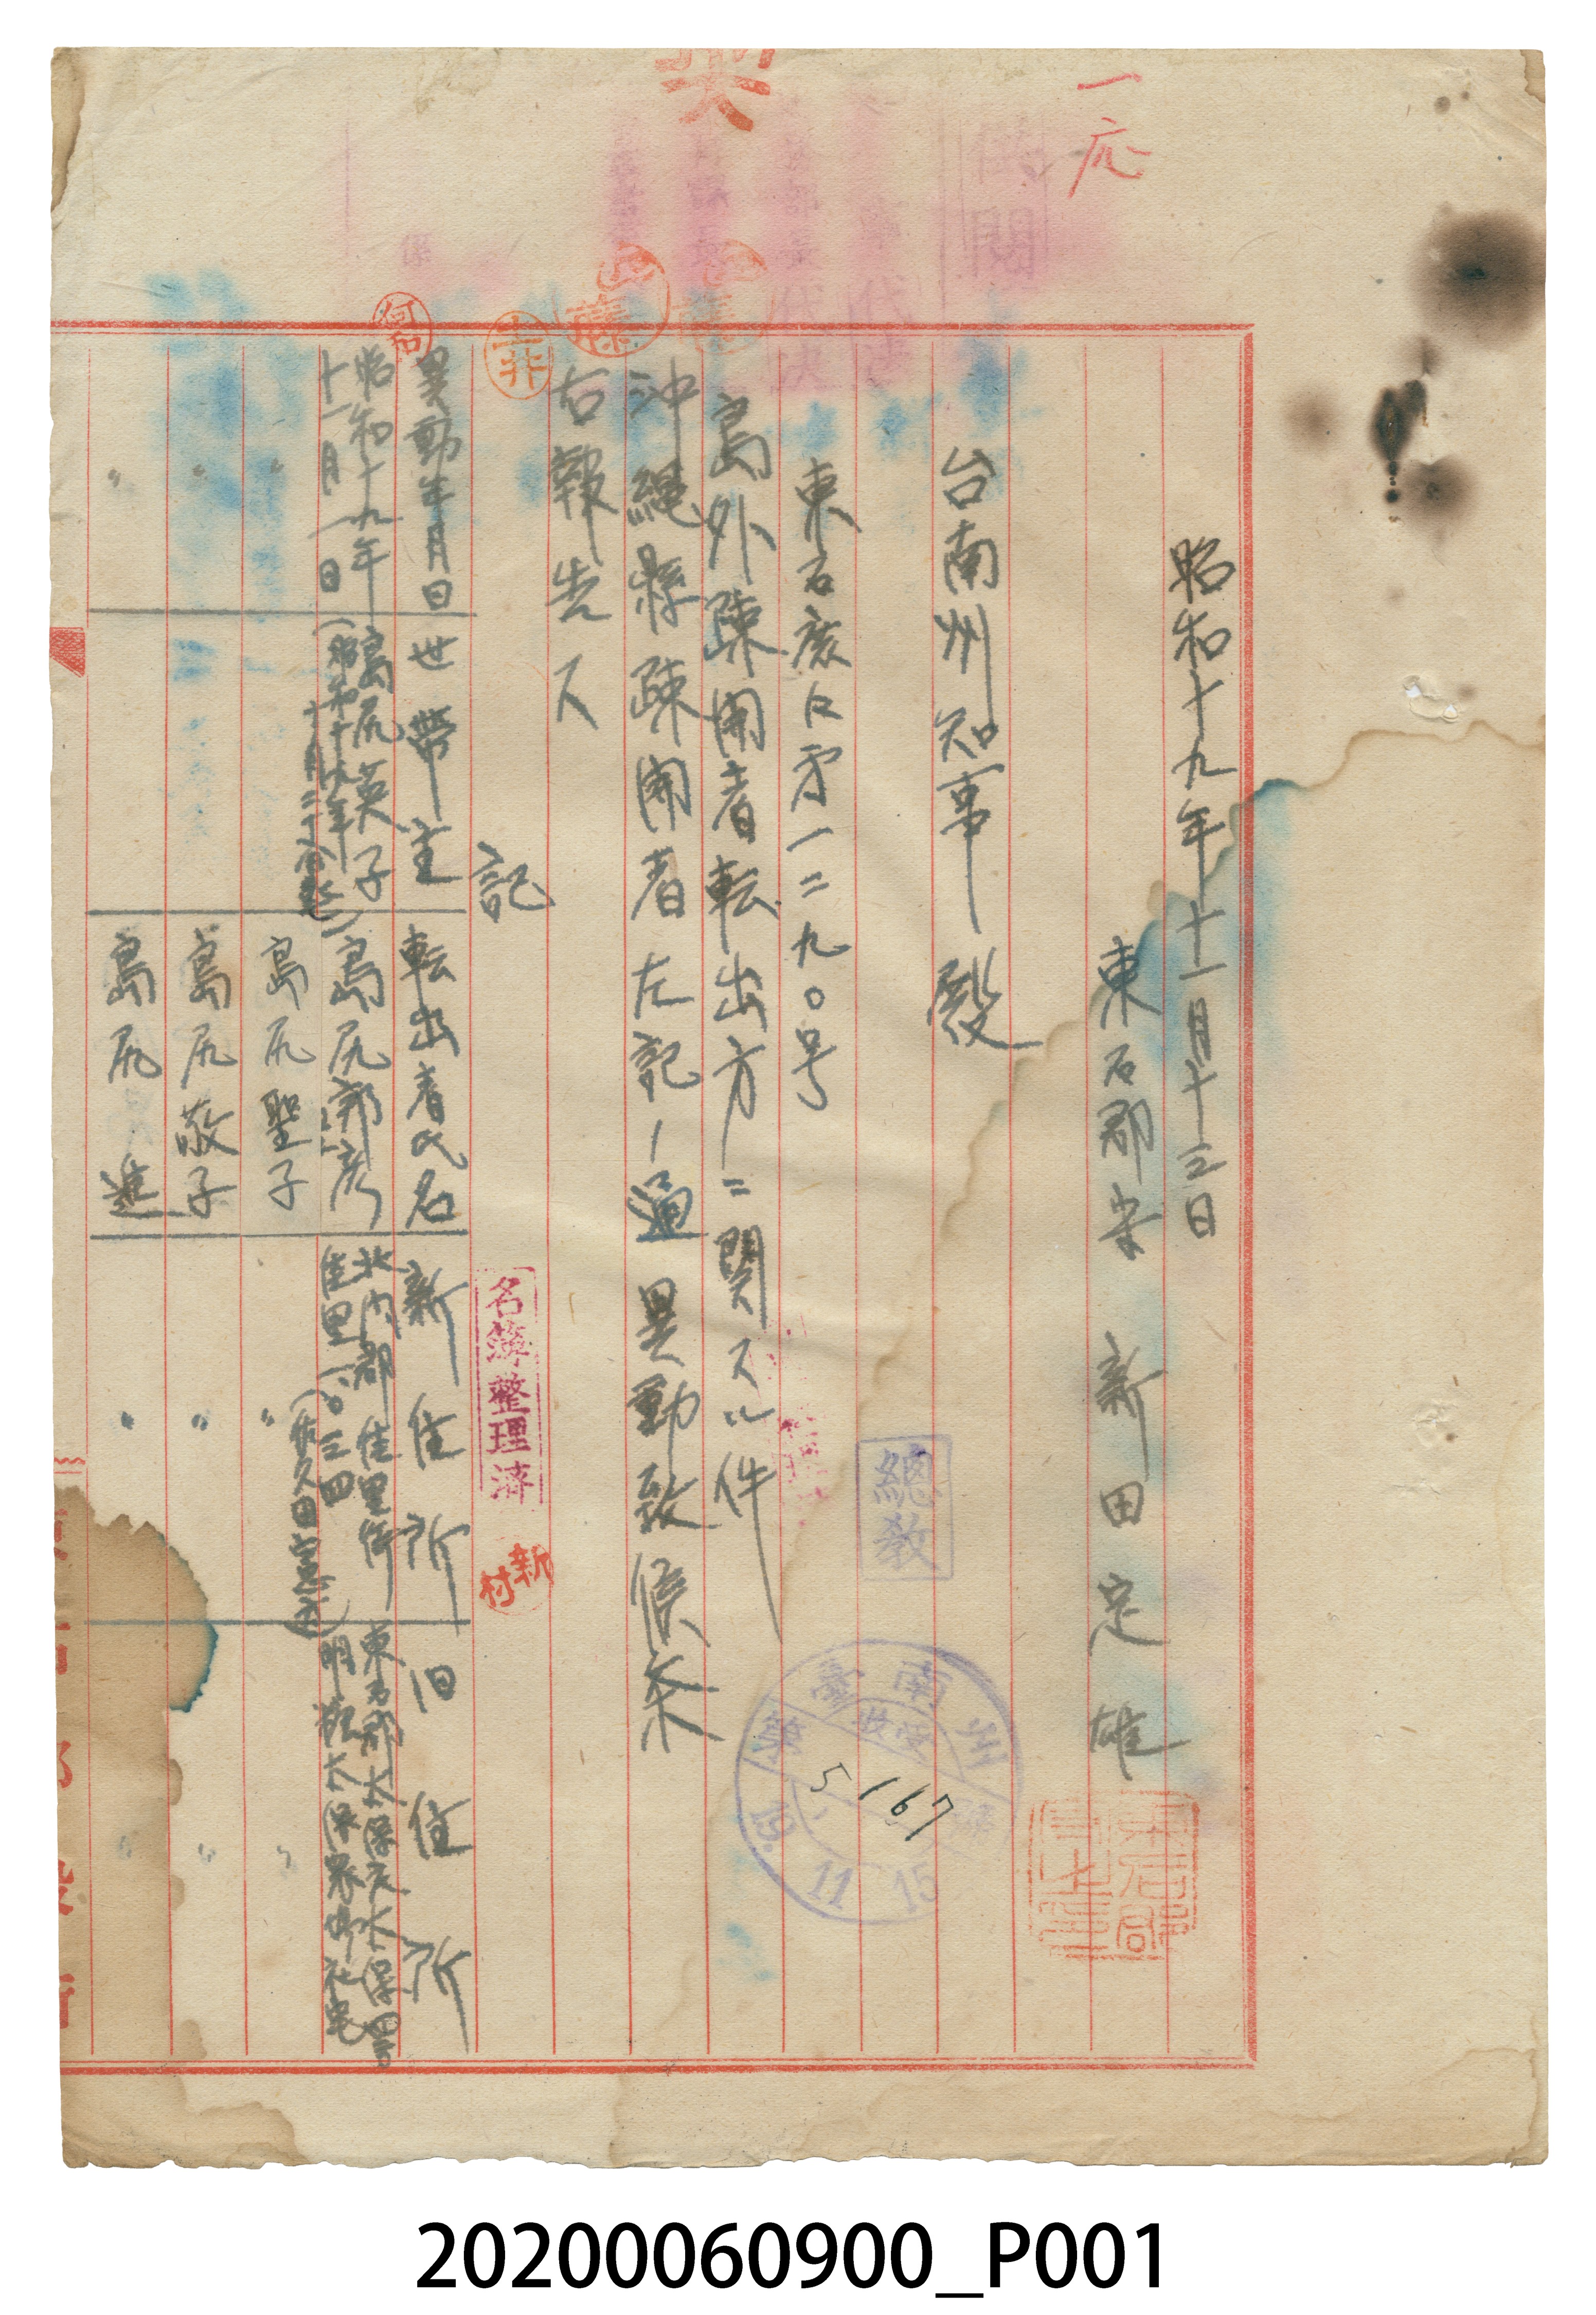 一応
昭和十九年十一月十三日
東石郡守 新田定雄
台南州知事殿
東石庶口第一二九〇号
島外疎開者転出方ニ関スル件
沖縄縣疎開者左記ノ通異動致候条
右報告ス
記
異動年月日 世帯主 転出者氏名 新住所 旧住所
昭和十九年十一月一日 島尻英子 (昭和十九年 島尻 北門郡佳里街佳里一〇三四 東石郡太保庄太保
〃 島尻聖子 〃 〃
〃 島尻敬子 〃 〃
〃 島尻進 〃 〃
名簿整理済
新村
總教
臺南州
收受
5167
19.11.15
20200060900_P001